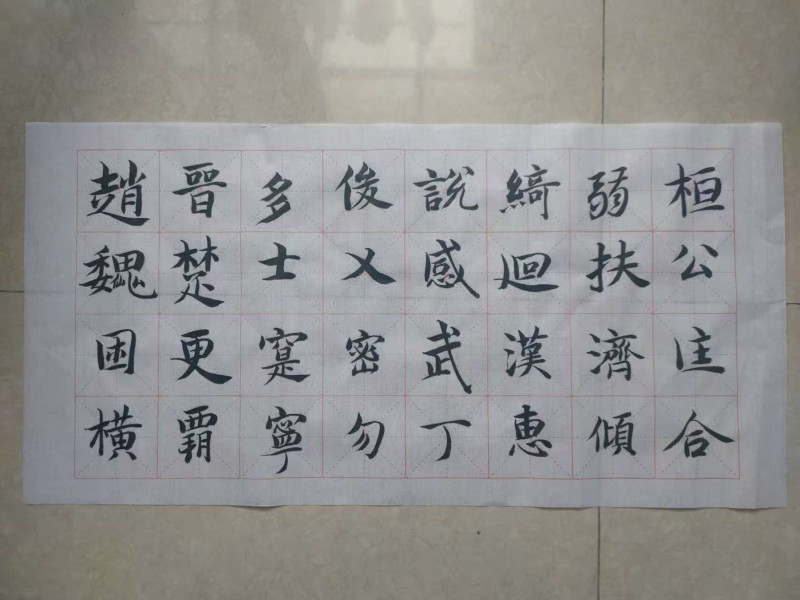 桓公匡合
弱扶濟傾
綺迴漢惠
說感武丁
俊乂密勿
多士寔寧
晉楚更霸
趙魏困橫